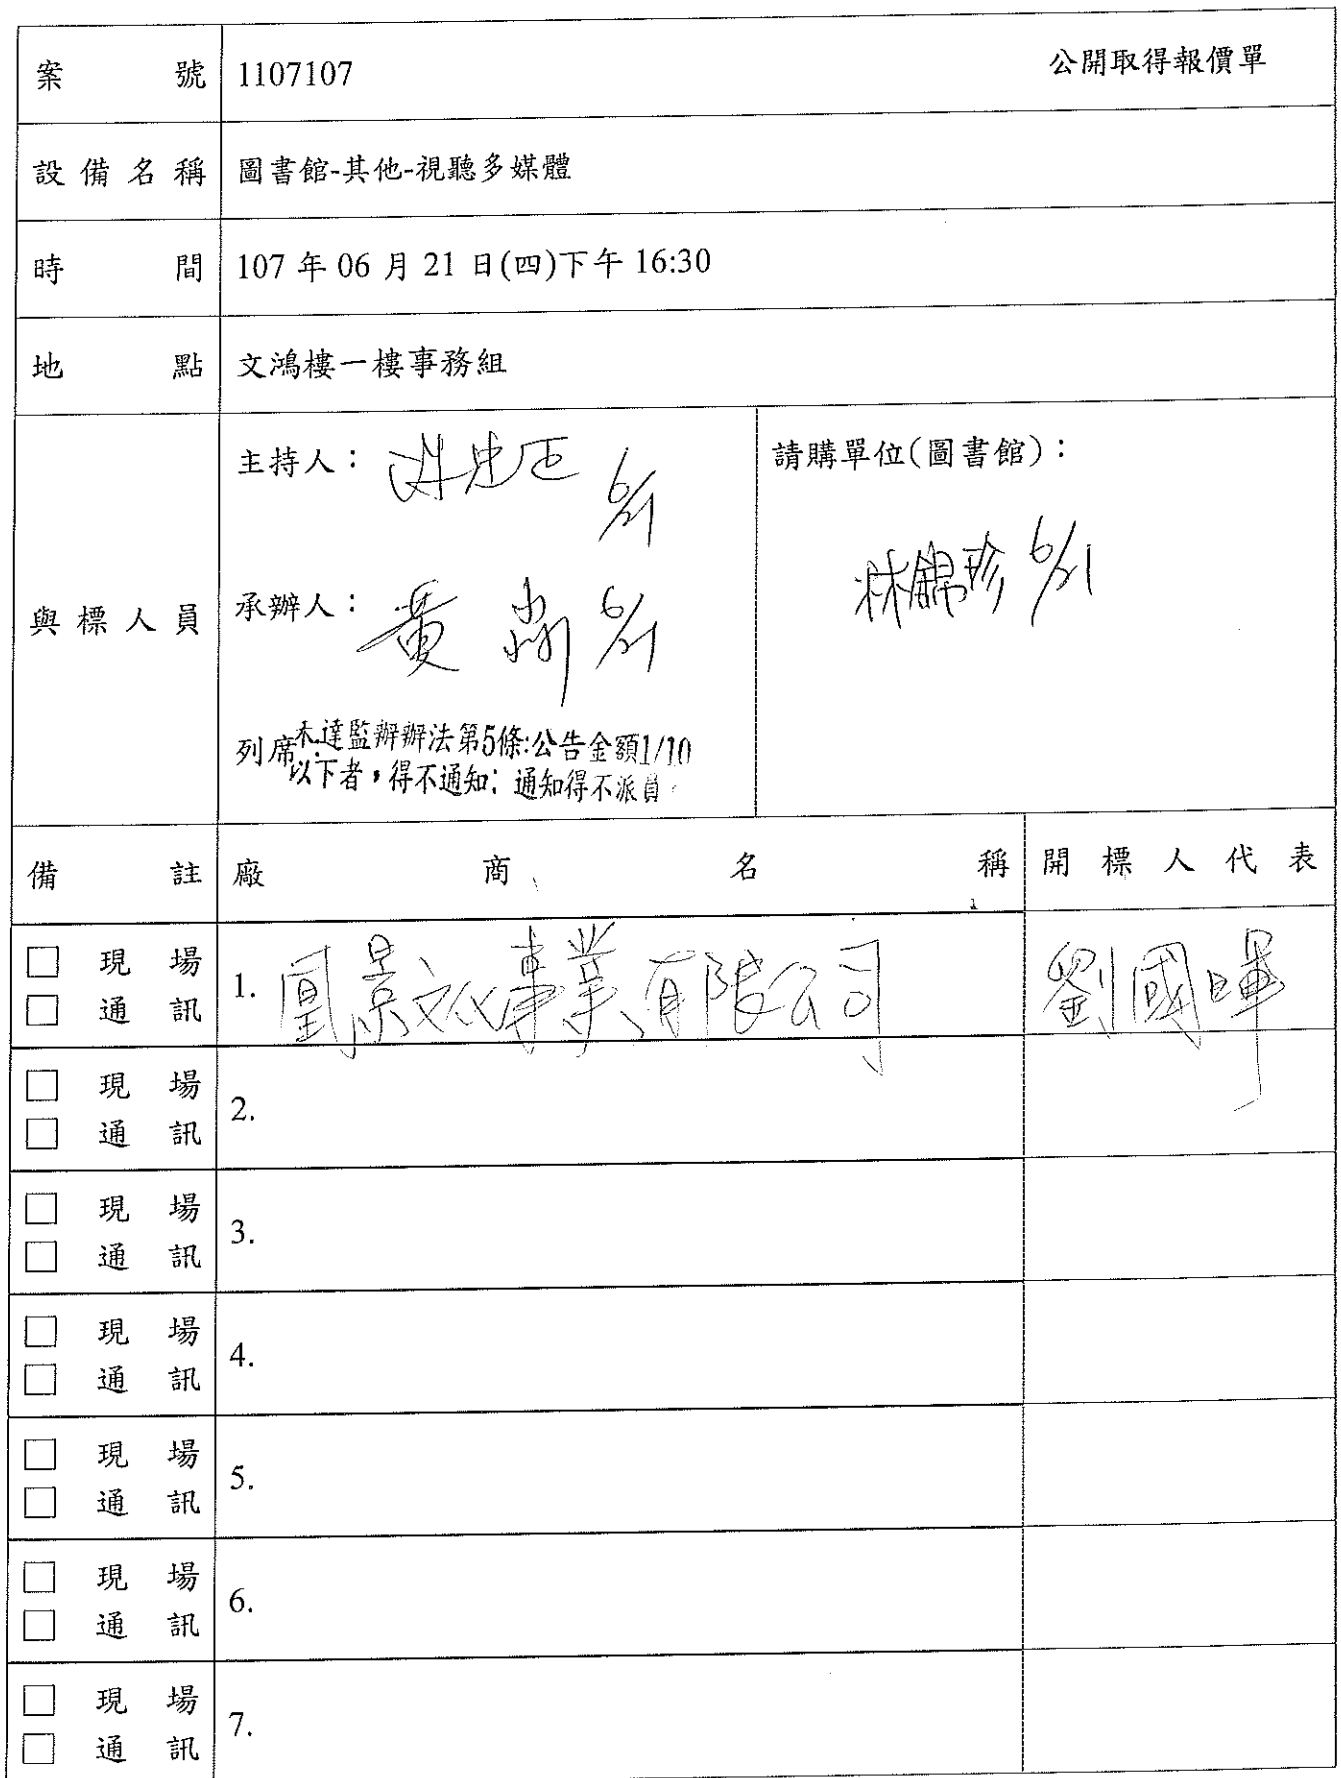 案號 1107107 公開取得報價單
設備名稱 圖書館-其他-視聽多媒體
時間 107 年 06 月 21 日(四)下午 16:30
地點 文鴻樓一樓事務組
與標人員
主持人： 6/21
承辦人：黃 6/21
列席：未達監辦辦法第5條:公告金額1/10
以下者，得不通知; 通知得不派員
請購單位(圖書館)：
林錦珍 6/21
備註 廠商名稱 開標人代表
□ 現場
□ 通訊
1. 凰景文化事業有限公司 劉國暉
□ 現場
□ 通訊
2.
□ 現場
□ 通訊
3.
□ 現場
□ 通訊
4.
□ 現場
□ 通訊
5.
□ 現場
□ 通訊
6.
□ 現場
□ 通訊
7.